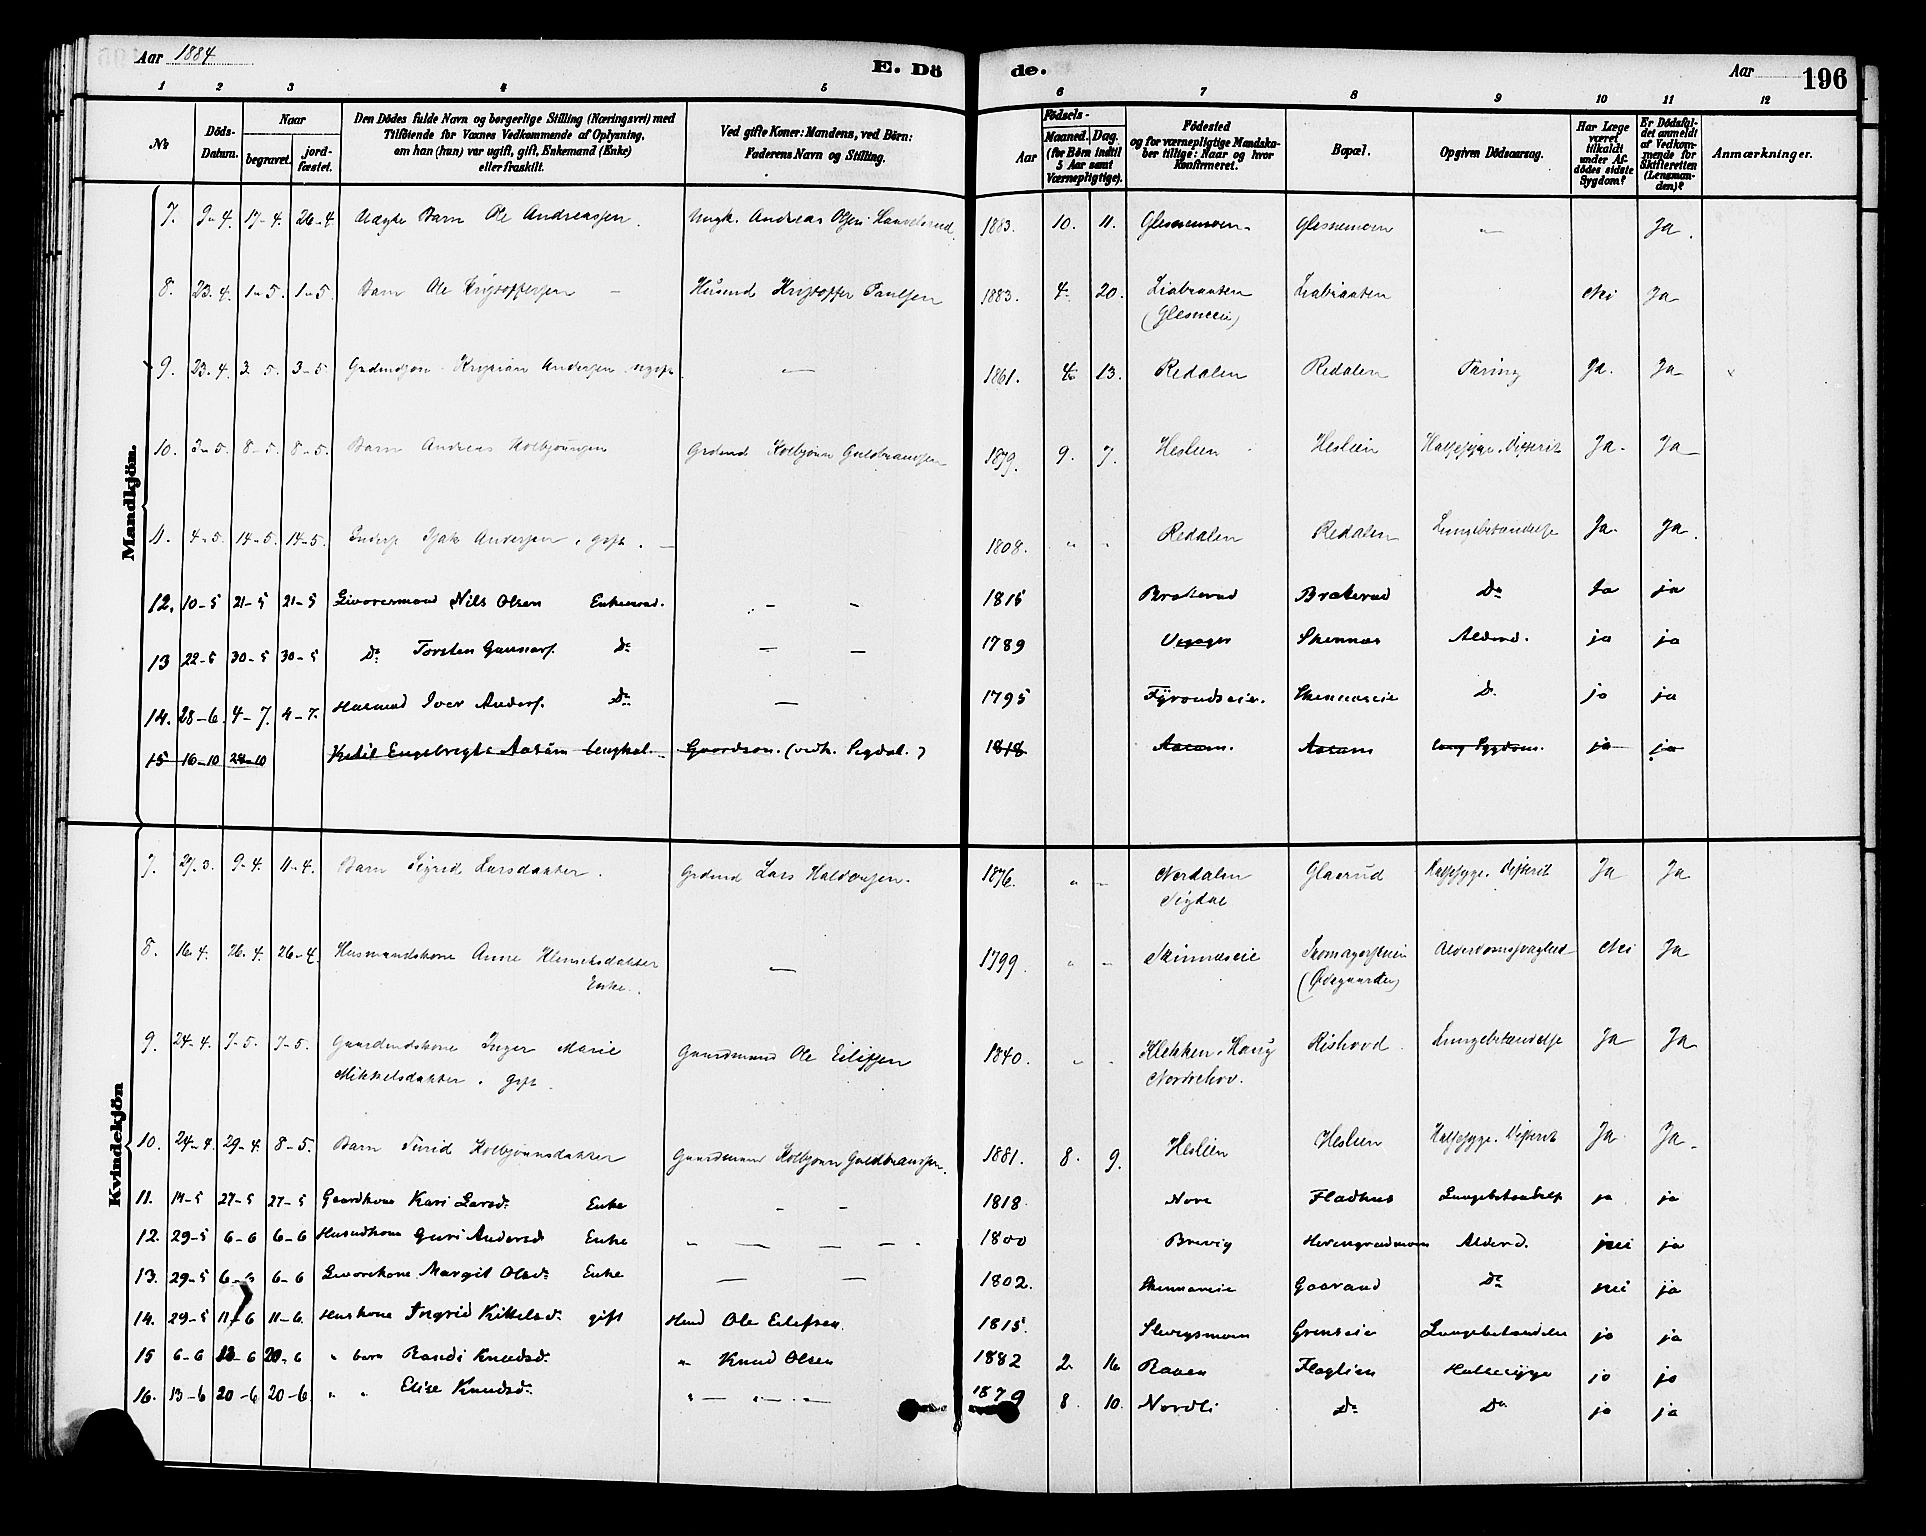 Aar 1884
E. Dö de.
Aar 196
1 2 3 4 5 6 7 8 9 10 11 12
No
Döds-Datum.
Naar
begravet.
jord-fæstet.
Den Dödes fulde Navn og borgerlige Stilling (Næringsvei) med
Tilföiende for Voxnes Vedkommende af Oplysning,
om han (hun) var ugift, gift, Enkemand (Enke)
eller fraskilt.
Ved gifte Koner: Mandens, ved Börn:
Faderens Navn og Stilling.
Födsels-
Aar
Maaned. Dag.
(for Börn indtil
5 Aar samt
Værnepligtige).
Födested
og for værnepligtige Mandska-
ber tillige: Naar og hvor
Konfirmeret.
Bopæl.
Opgiven Dödsaarsag.
Har Læge
været
tilkaldt
under Af-
dödes sidste
Sygdom?
Er Dödsfal-
det anmeldt
af Vedkom-
mende for
Skifteretten
(Lensman-
den)?
Anmærkninger.
Mandkjön.
7. 9-4. 17-4. 26-4. Uægte Barn Ole Andreassen. Ungk. Andreas Olsen 1883. 10. 11. Glesnemoen Glesnemoen " Ja.
8. 23.4. 1-5. 1-5. Barn Ole Kristoffersen Husmd Kristoffer Paulsen 1883. 4. 20. Liabraaten Liabraaten Nei Ja
(Glesneeie)
9. 23.4. 3-5. 3-5. Grdmdsøn Kristian Andersen ugift — 1861. 4 13. Redalen Redalen Tæring Ja. Ja
10. 3-5. 8-5. 8-5. Barn Andreas Kolbjørnsen Grdmd Kolbjørn Guldbrandsen 1879. 9. 7. Heslien Heslien Halssyge. Difterit Ja. Ja
11. 4-5. 14-5. 14-5. Andersen, gift. — 1808. " " Redalen Redalen Lungebetændelse Ja. Ja.
12. 10-5 21-5 21-5 Livøresmand Nils Olsen Enkemd. — — 1815 Braterud Braterud Do Ja ja
13 22-5 30-5 30-5 Do Torsten Gunnars. Do — — 1789 Skennæs Alderd. ja ja
14. 28-6. 4-7. 4-7. Husmd Iver Anders. Do — 1795 Fyrandseie. Skennæseie D. ja ja
15 16-10 28-10 Ketil Engebregts. Aasum ungkal. Gaardsøn. (vedk. Sigdal.) 1818 Aasum. Aasum lang Sygdom. ja ja
Kvindekjön
7. 27.3. 9-4. 11-4. Barn Sigrid Larsdatter. Grdmd Lars Haldorsen. 1876. " " Nordalen Glaarud Halssyge. Difterit Ja Ja
Sigdal
8. 16.4. 26.4. 26-4. Husmandskone Anne Henriksdatter — 1799. " " Skinnæseie Alderdomssvaghed Nei Ja
Enke. (Ødegaarden)
9. 24-4. 7-5. 7-5. Gaardmdskone Inger Marie Gaardmand Ole Eilifsen 1840. " " Klekken. Haug Rishovd. Lungebetændelse Ja Ja
Mikkelsdatter. gift. Norderhov.
10. 24-4. 29-4. 8-5. Barn Turid Kolbjørnsdatter Gaardmand Kolbjørn Guldbrandsen. 1881. 8. 9. Heslien Heslien Halssyge. Difterit Ja Ja
11. 14-5 27-5 27-5 Gaardkone Kari Larsd. Enke — — 1818 Nore Fladhus Lungebetændelse ja ja
12. 29-5 6-6 6-6 Husmdkone Guri Andersd. Enke " — — — — 1800 Brevig Alderd. nei ja
13. 29-5 6-6 6-6 Livøreskone Margit Olsd. Enke — — 1802. Skennæseie Gaarand Do nei ja
14. 29-5 11-6 11-6. Huskone Ingrid Kittelsd. gift Hmd Ole Eilefsen. 1815. Grenseie Lungebetændelse ja ja
15 6-6 13-6 20-6 " barn Randi Knudsd. " Knud Olsen 1882 2. 16 Raaen Flaglien Halssyge ja ja
16. 13-6 20-6 20-6 " " Elise Knudsd. " — " — 1879 8. 10. Nordli Do Do ja ja